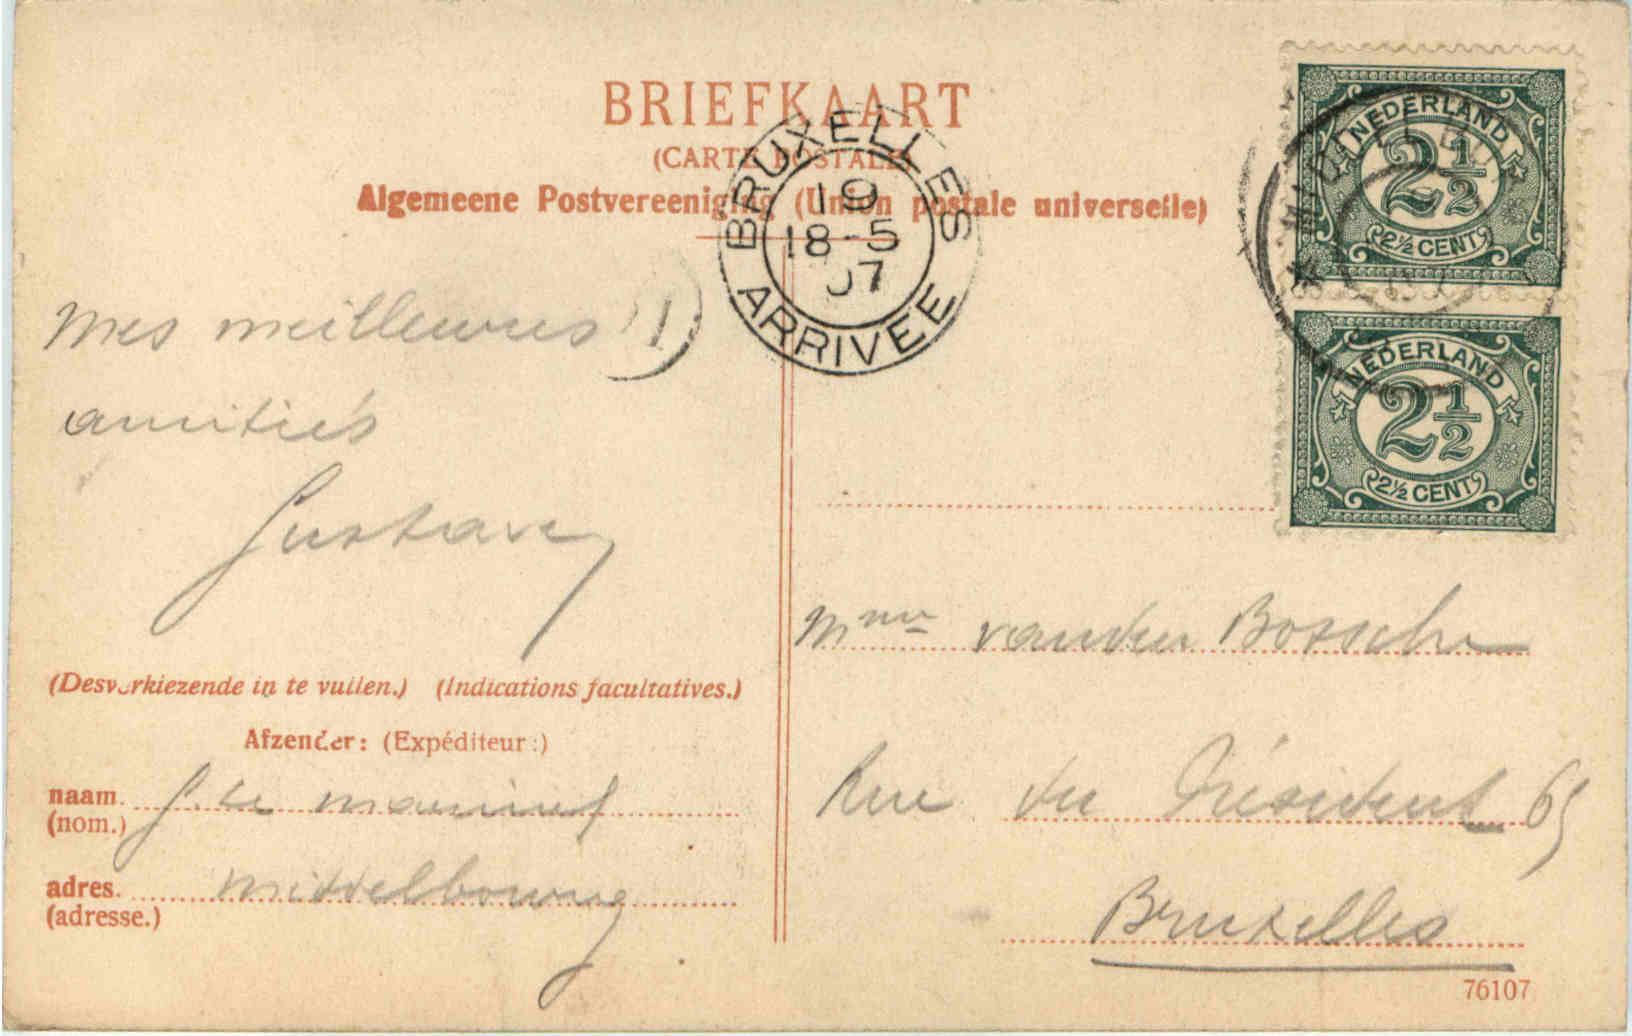 BRIEFKAART
(CARTE POSTALE)
Algemeene Postvereeniging (Union postale universelle)
BRUXELLES
19
18-5
07
ARRIVEE
NEDERLAND
2½
2½ CENT
NEDERLAND
2½
2½ CENT
Mes meilleures
amitiés
Gustave
(Desverkiezende in te vullen.) (Indications facultatives.)
Afzender: (Expéditeur:)
naam.
(nom.)
adres. Middelbourg
(adresse.)
Mme vanden Bossche
Rue du Président 65
Bruxelles
76107